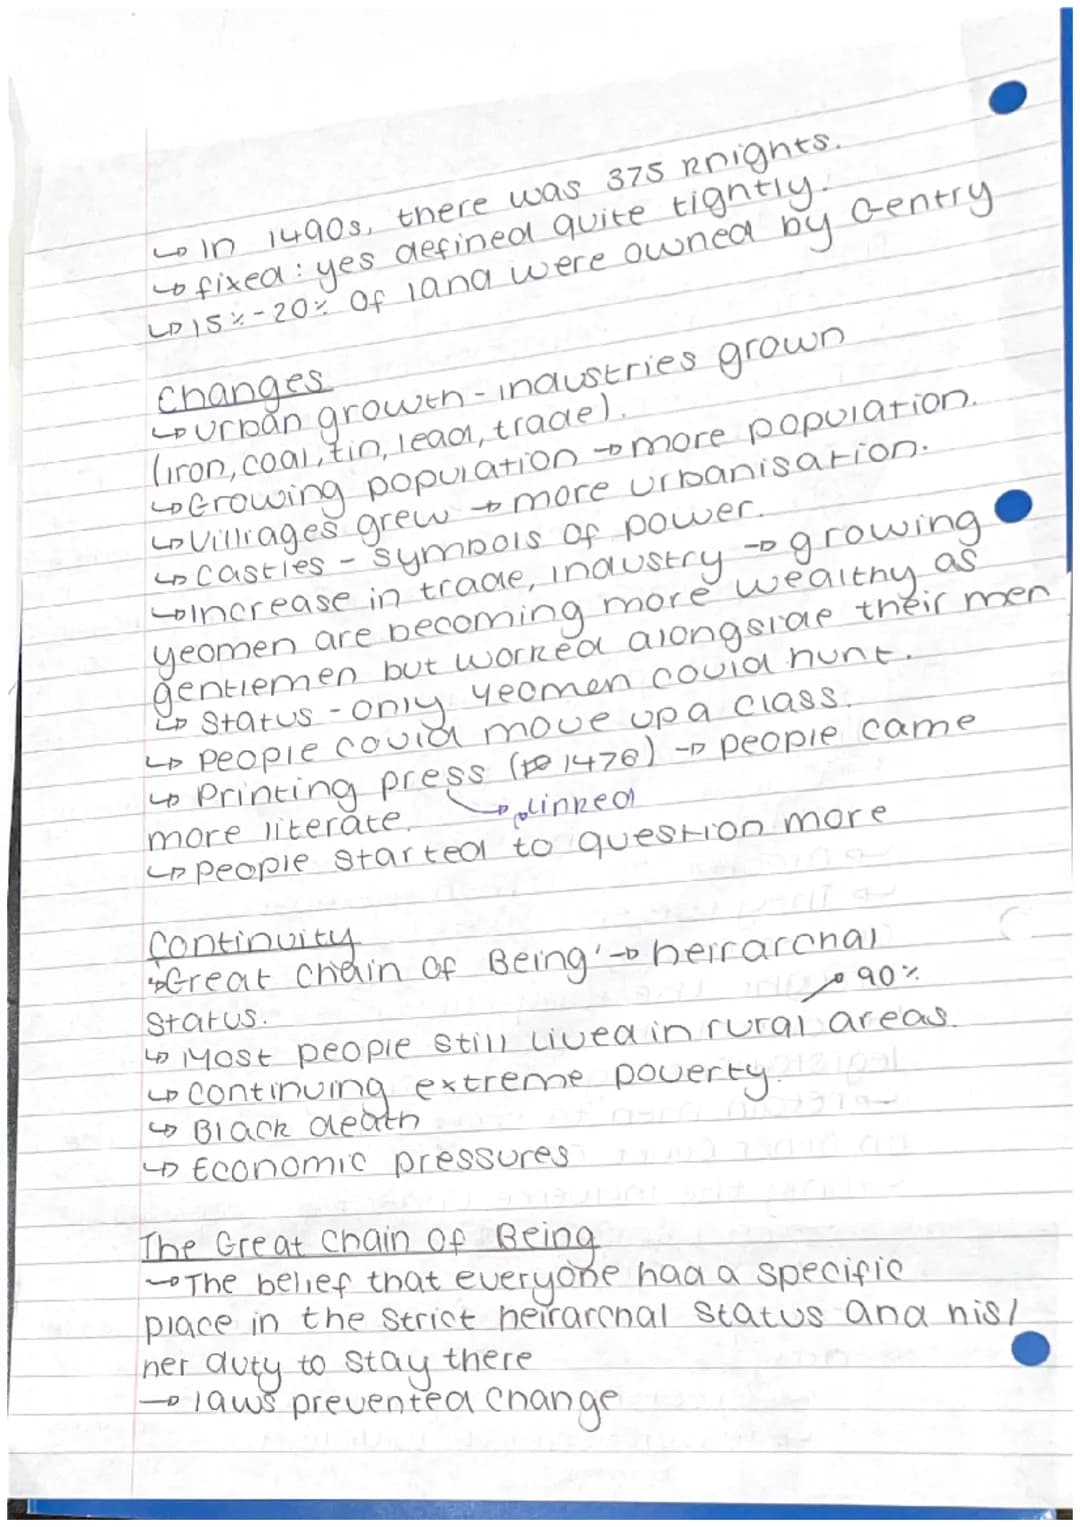 ↳ In 1490s, there was 375 Knights.
↳ fixed: yes defined quite tightly.
↳ 15%-20% of land were owned by Gentry
Changes
↳ urban growth - industries grown
(iron, coal, tin, lead, trade).
↳ Growing population → more population.
↳ Villiages grew → more urbanisation.
↳ Castles - symbols of power.
↳ Increase in trade, industry → growing
yeomen are becoming more wealthy as
gentlemen but worked alongside their men
↳ Status - only yeomen could hunt.
↳ People could move up a class.
↳ Printing press (1476) → people came
more literate. → linked
↳ people started to question more
Continuity
↳ Great Chain of Being' → heirarchal
→ 90%
status.
↳ Most people still lived in rural areas.
↳ Continuing extreme poverty.
↳ Black death
↳ Economic pressures
The Great Chain of Being
→ The belief that everyone had a specific
place in the strict heirarchal status and his/
her duty to stay there
→ laws prevented change